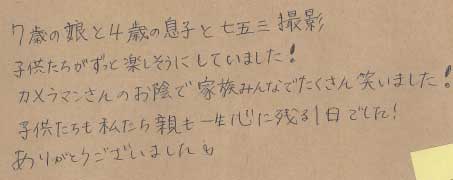 7歳の娘と4歳の息子と七五三撮影
子供たちがずっと楽しそうにしていました!
カメラマンさんのお陰で家族みんなでたくさん笑いました!
子供たちも私たち親も一生心に残る1日でした!
ありがとうございました